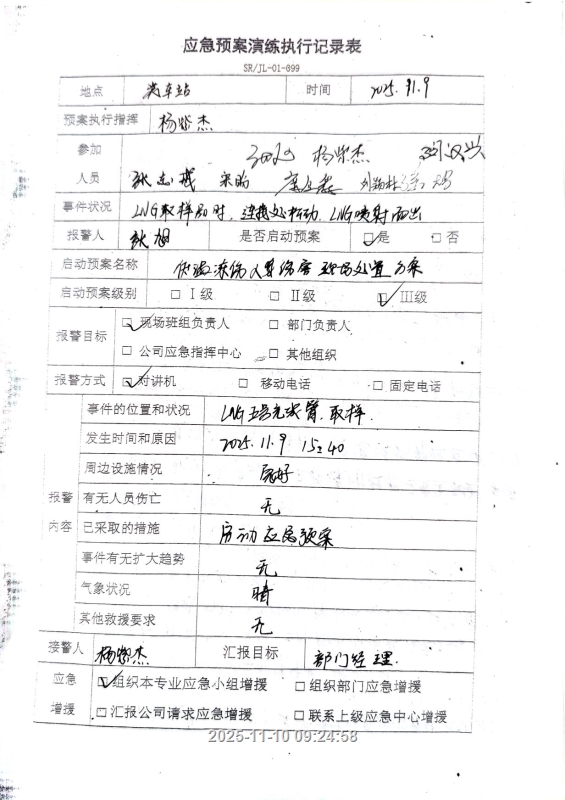 应急预案演练执行记录表
SR/JL-01-099
地点 汽车站 时间 2025.11.9
预案执行指挥 杨紫杰
参加 杨紫杰
人员
事件状况 LNG取样品时,连接处松动,LNG喷射而出
报警人 是否启动预案 ☑是 □否
启动预案名称 低温冻伤人员伤害现场处置方案
启动预案级别 □Ⅰ级 □Ⅱ级 ☑Ⅲ级
报警目标 ☑现场班组负责人 □部门负责人
□公司应急指挥中心 □其他组织
报警方式 ☑对讲机 □移动电话 □固定电话
报警内容
事件的位置和状况 LNG 充装臂.取样.
发生时间和原因 2025.11.9 15:40
周边设施情况 良好
有无人员伤亡 无
已采取的措施 启动应急预案
事件有无扩大趋势 无
气象状况 晴
其他救援要求 无
接警人 杨紫杰 汇报目标 部门经理.
应急增援 ☑组织本专业应急小组增援 □组织部门应急增援
□汇报公司请求应急增援 □联系上级应急中心增援
2025-11-10 09:24:58